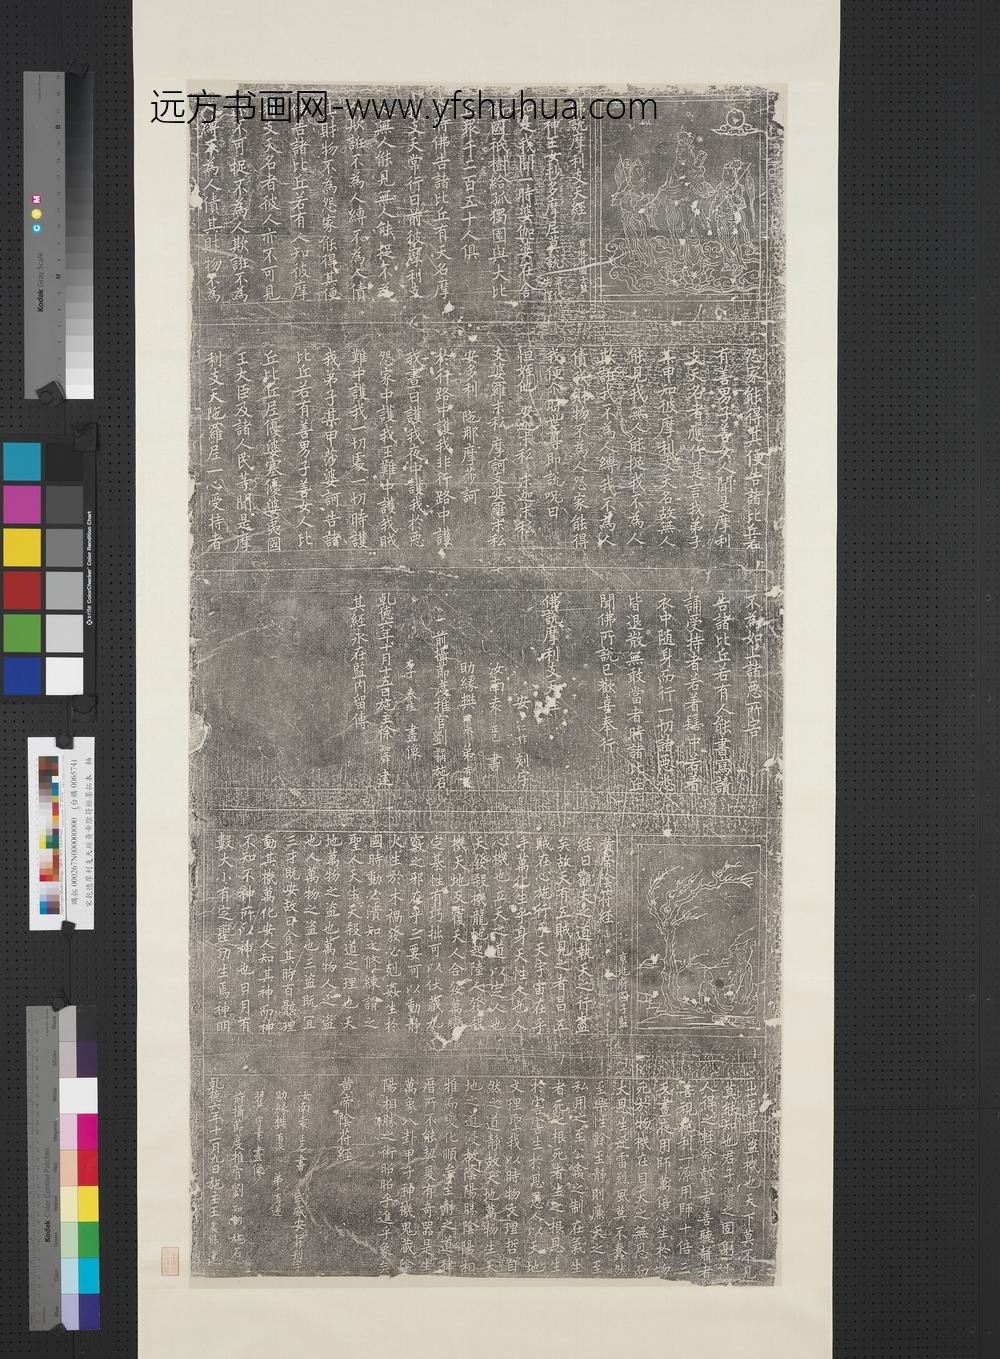 远方书画网-www.yfshuhua.com
佛說摩利支天經
國祇樹給孤獨園與大比
眾千二百五十人俱
佛告諸比丘有天名摩
利支天常行日前彼摩利支
無人能見無人能捉不為
欺誑不為人縛不為人債
其財物不為怨家能得其便
告諸比丘若有人知彼摩
利支天名者彼人亦不可見
不可捉不為人欺誑不為
縛不為人債其財物不為
怨家能得其便告諸比丘若
有善男子善女人聞是摩利
支天名者應作是言我弟子
某甲知彼摩利支天名故無人
能見我無人能捉我不為人
欺誑我不為人縛我不為人
債我財物不為人怨家能得
我便爾時世尊即說咒曰
安多利 陁那摩莎訶
於行路中護我非行路中護
我晝日護我夜中護我於惡
怨家中護我王難中護我賊
難中護我一切處一切時護
我弟子某甲莎婆訶告諸
比丘若有善男子善女人比
丘比丘尼優婆塞優婆夷國
王大臣及諸人民等聞是摩
利支天陁羅尼一心受持者
不為如上諸惡所害
告諸比丘若有人能書寫讀
誦受持者若著髻中若著
衣中隨身而行一切諸惡悉
皆退散無敢當者時諸比丘
聞佛所說已歡喜奉行
佛說摩利支天經
安仁祚刻字
汝南袁正己書
李奉珪 畫像
乾德六年十月十五日施主徐知舜建
其經永在監內留傳
黃帝陰符經
京兆府國子監
經曰觀天之道執天之行盡
矣故天有五賊見之者昌五
賊在心施行于天宇宙在乎
手萬化生乎身天性人也人
心機也立天之道以定人也
天發殺機龍蛇起陸人發殺
機天地反覆天人合發萬變
定基性有巧拙可以伏藏九
竅之邪在乎三要可以動靜
火生於木禍發必剋姦生於
國時動必潰知之修練謂之
聖人天生天殺道之理也天
地萬物之盜也萬物人之盜
也人萬物之盜也三盜既宜
三才既安故曰食其時百骸理
動其機萬化安人知其神而神
不知不神所以神也日月有
數大小有定聖功生焉神明
出焉其盜機也天下莫不見
莫能知也君子得之固躬小
人得之輕命瞽者善聽聾者
善視絕利一源用師十倍三
反晝夜用師萬倍心生於物
死於物機在目天之無恩而
大恩生迅雷烈風莫不蠢然
至樂性餘至靜則廉天之至
私用之至公禽之制在氣生
者死之根死者生之根恩生
於害害生於恩愚人以天地
文理聖我以時物文理哲自
然之道靜故天地萬物生天
地之道浸故陰陽勝陰陽相
推而變化順矣至靜之道律
曆所不能契爰有奇器是生
萬象八卦甲子神機鬼藏陰
陽相勝之術昭昭乎進乎象矣
黃帝陰符經
汝南袁正己書 武威安祚刻字
乾德六年十一月九日施主
Kodak Gray Scale
C Y M
x-rite ColorChecker Color Rendition Chart
購拓 000267N000000000 (台購 006574)
宋乾德摩利支天經黃帝陰符經墨拓本 軸
Kodak Color Control Patches